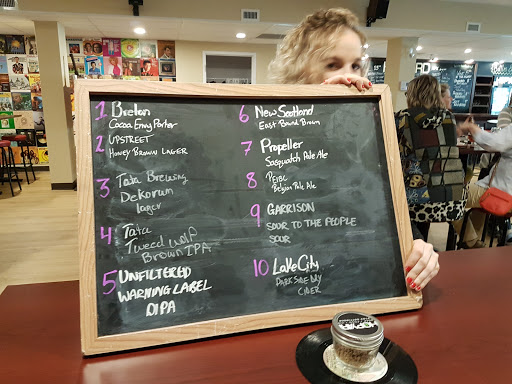 1 Brelon
Cocoa Envy Porter
2 UPSTREET
HONEY BROWN LAGER
3 Tata Brewing
Dekorum
lager
4 Tata
Tweed Wolf
Brown IPA
5 UNFILTERED
WARNING LABEL
DIPA
6 New Scotland
East Bound Brown
7 Propeller
Sasquatch Pale Ale
8 PEIBC
Belgian Pale Ale
9 GARRISON
SOUR TO THE PEOPLE
SOUR
10 Lake City
DARK SIDE DRY
CIDER